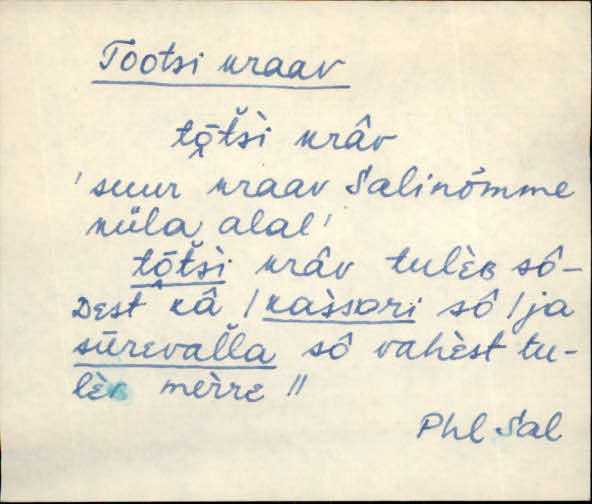 Tootsi kraav
tō̭t̆s̀i krâv
'suur kraav Salinõmme
küla alal'
tō̭t̆s̀i krâv tulèʙ sô-
ᴅest kâ /kas̀s̀ari sô/ ja
sūrevaľľa sô vahèst tu-
lèʙ mèrre //
Phl Sal